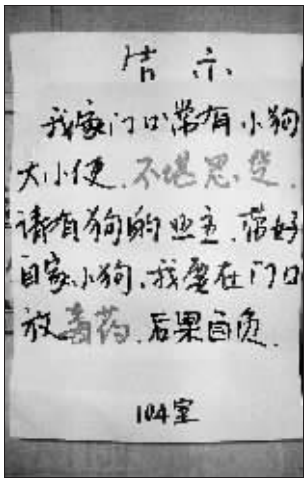 告示
我家门口常有小狗
大小便,不堪忍受,
请有狗的业主,带好
自家小狗,我要在门口
放毒药,后果自负.
104室